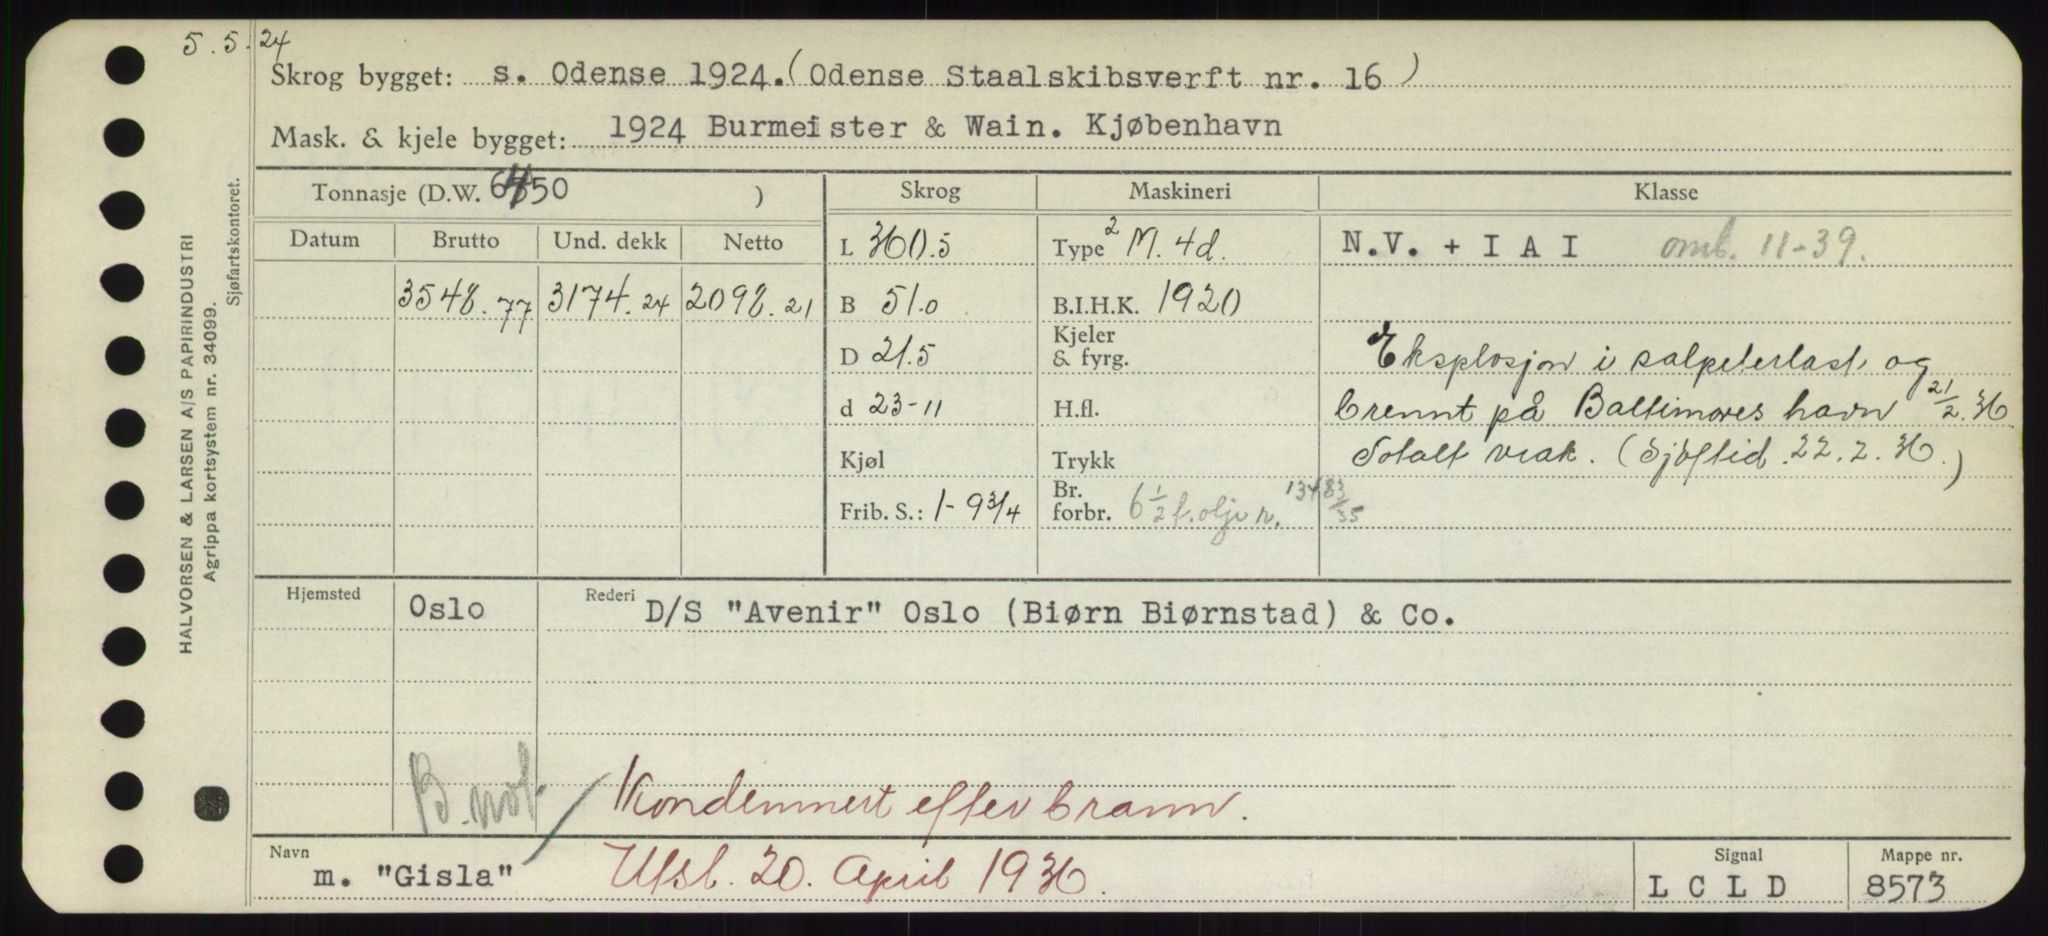 5.5.24
Skrog bygget: s. Odense 1924. (Odense Staalskibsverft nr. 16)
Mask. & kjele bygget: 1924 Burmeister & Wain. Kjøbenhavn
Tonnasje (D.W. 6450 ) Skrog Maskineri Klasse
Datum Brutto Und. dekk Netto L 360.5 Type 2 M. 4d. N.V. + I A I omb. 11-39.
3548.77 3174.24 2098.21 B 51.0 B.I.H.K. 1920
D 21.5 Kjeler & fyrg. Eksplosjon i salpeterlast og
d 23-11 H.fl. brennt på Baltimores havn 21/2.36
Kjøl Trykk Totalt vrak. (Sjøftid. 22.2.36.)
Frib. S.: 1-9 3/4 Br. forbr. 6 1/2 t. olje
Hjemsted Oslo Rederi D/S "Avenir" Oslo (Biørn Biørnstad) & Co.
B. not. Kondemnert efter brann.
Navn m. "Gisla" Utsl. 20. April 1936. Signal L C L D Mappe nr. 8573
HALVORSEN & LARSEN A/S PAPIRINDUSTRI
Agrippa kortsystem nr. 34099.
Sjøfartskontoret.